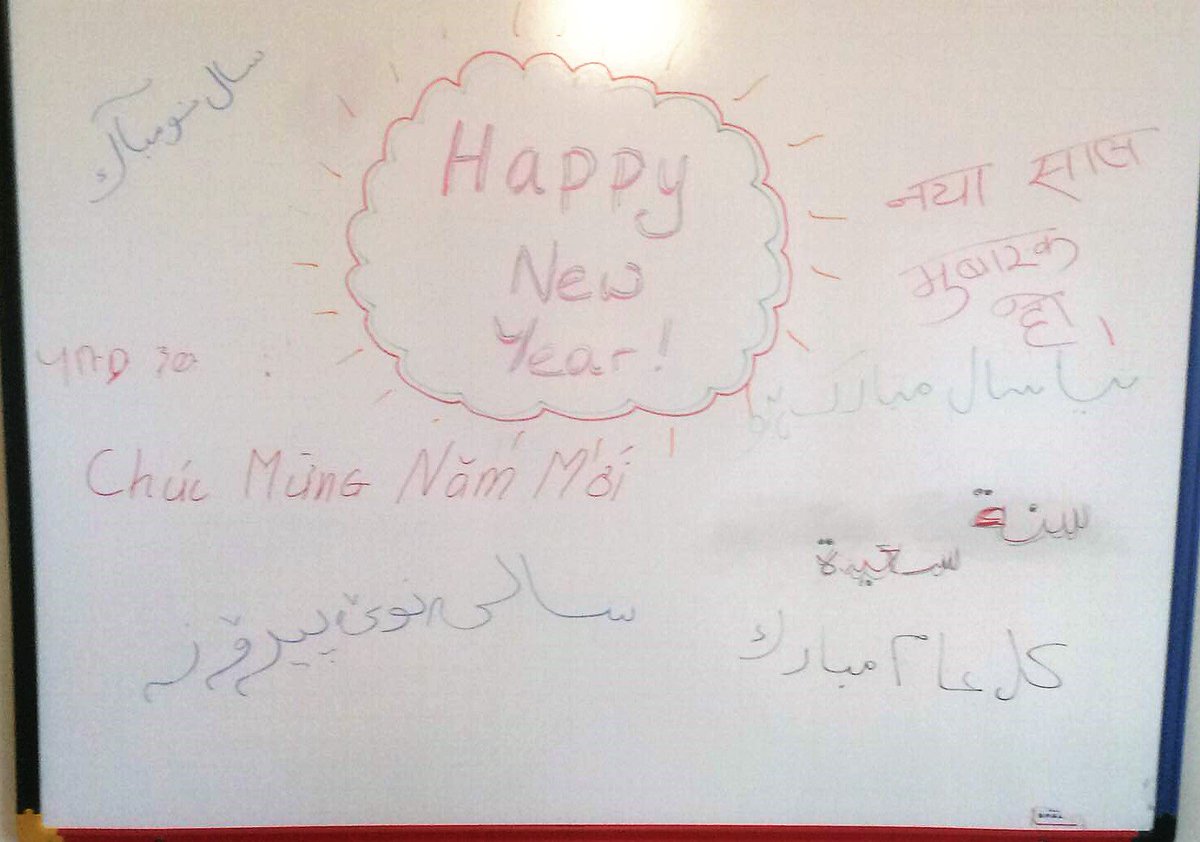 سال نو مبارک
Happy
New
Year!
नया साल
मुबारक
हो।
نیا سال مبارک ہو
Chúc Mừng Năm Mới
سنة
سعيدة
سالی نوێ پیرۆز
كل عام مبارك